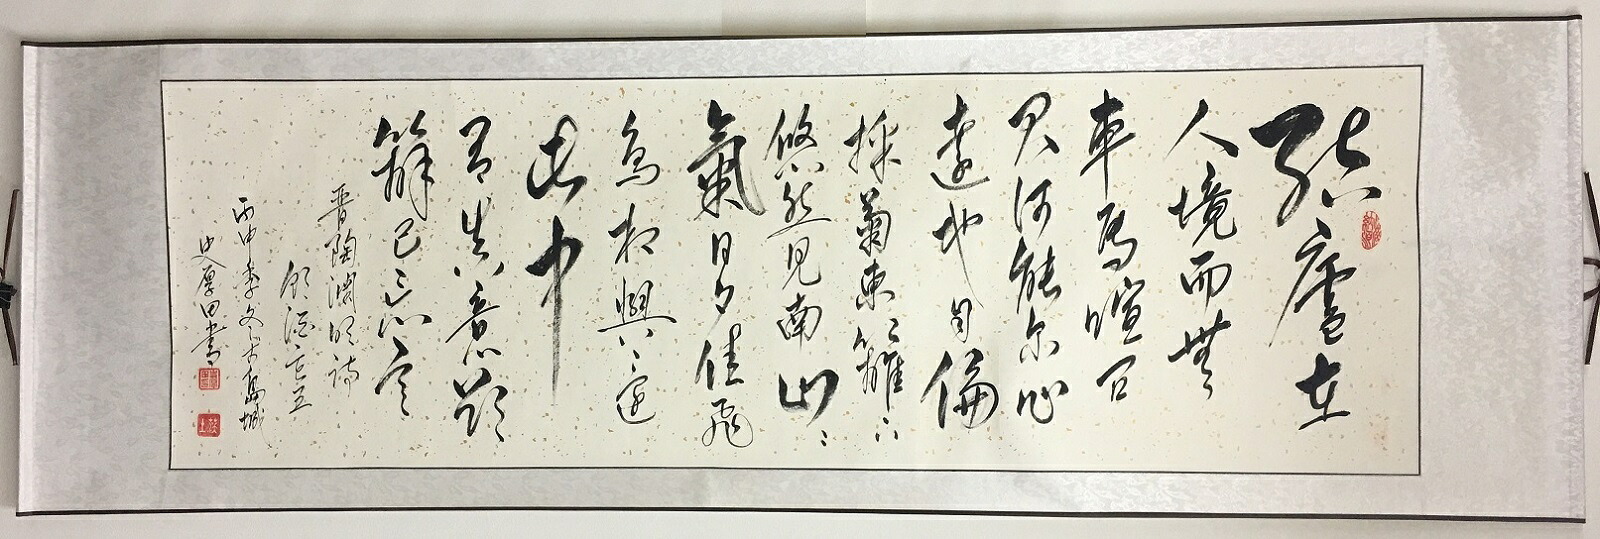 結廬在
人境而無
車馬喧問
君何能尔心
遠地自偏
採菊東籬下
悠然見南山山
氣日夕佳飛
鳥相與還
此中
有真意欲
辯已忘言
晉陶淵明詩
飲酒其五
丙申季冬於鳥城
史厚田書